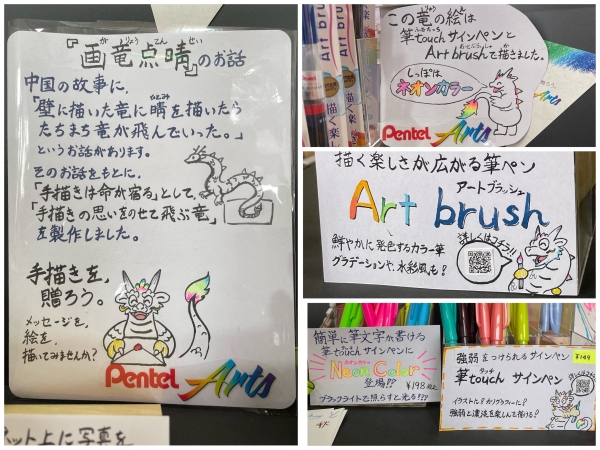 『画竜点睛』のお話
が りょう てん せい
中国の故事に、
「壁に描いた竜に睛を描いたら
ひとみ
たちまち竜が飛んでいった。」
というお話があります。
そのお話をもとに、
「手描きは命が宿る」として、
「手描きの思いをのせて飛ぶ竜」
を製作しました。
手描きを、
贈ろう。
メッセージを、
絵を、
描いてみませんか?
Pentel Arts
ネット上に写真を
Art brush
この竜の絵は
筆touchサインペンと
Art brushで描きました。
しっぽは
ネオンカラー
Pentel Arts
描く楽しさが広がる筆ペン
Art brush
アートブラッシュ
詳しくはコチラ!!
鮮やかに発色するカラー筆
グラデーションや、水彩風も!
簡単に筆文字が書ける
筆touchサインペンに
ネオンカラー
Neon Color
登場!?
¥198
ブラックライトで照らすと光る!??
強弱をつけられるサインペン
筆touchサインペン
タッチ
イラストに?カリグラフィーに?
強弱と濃淡を楽しんで描ける?